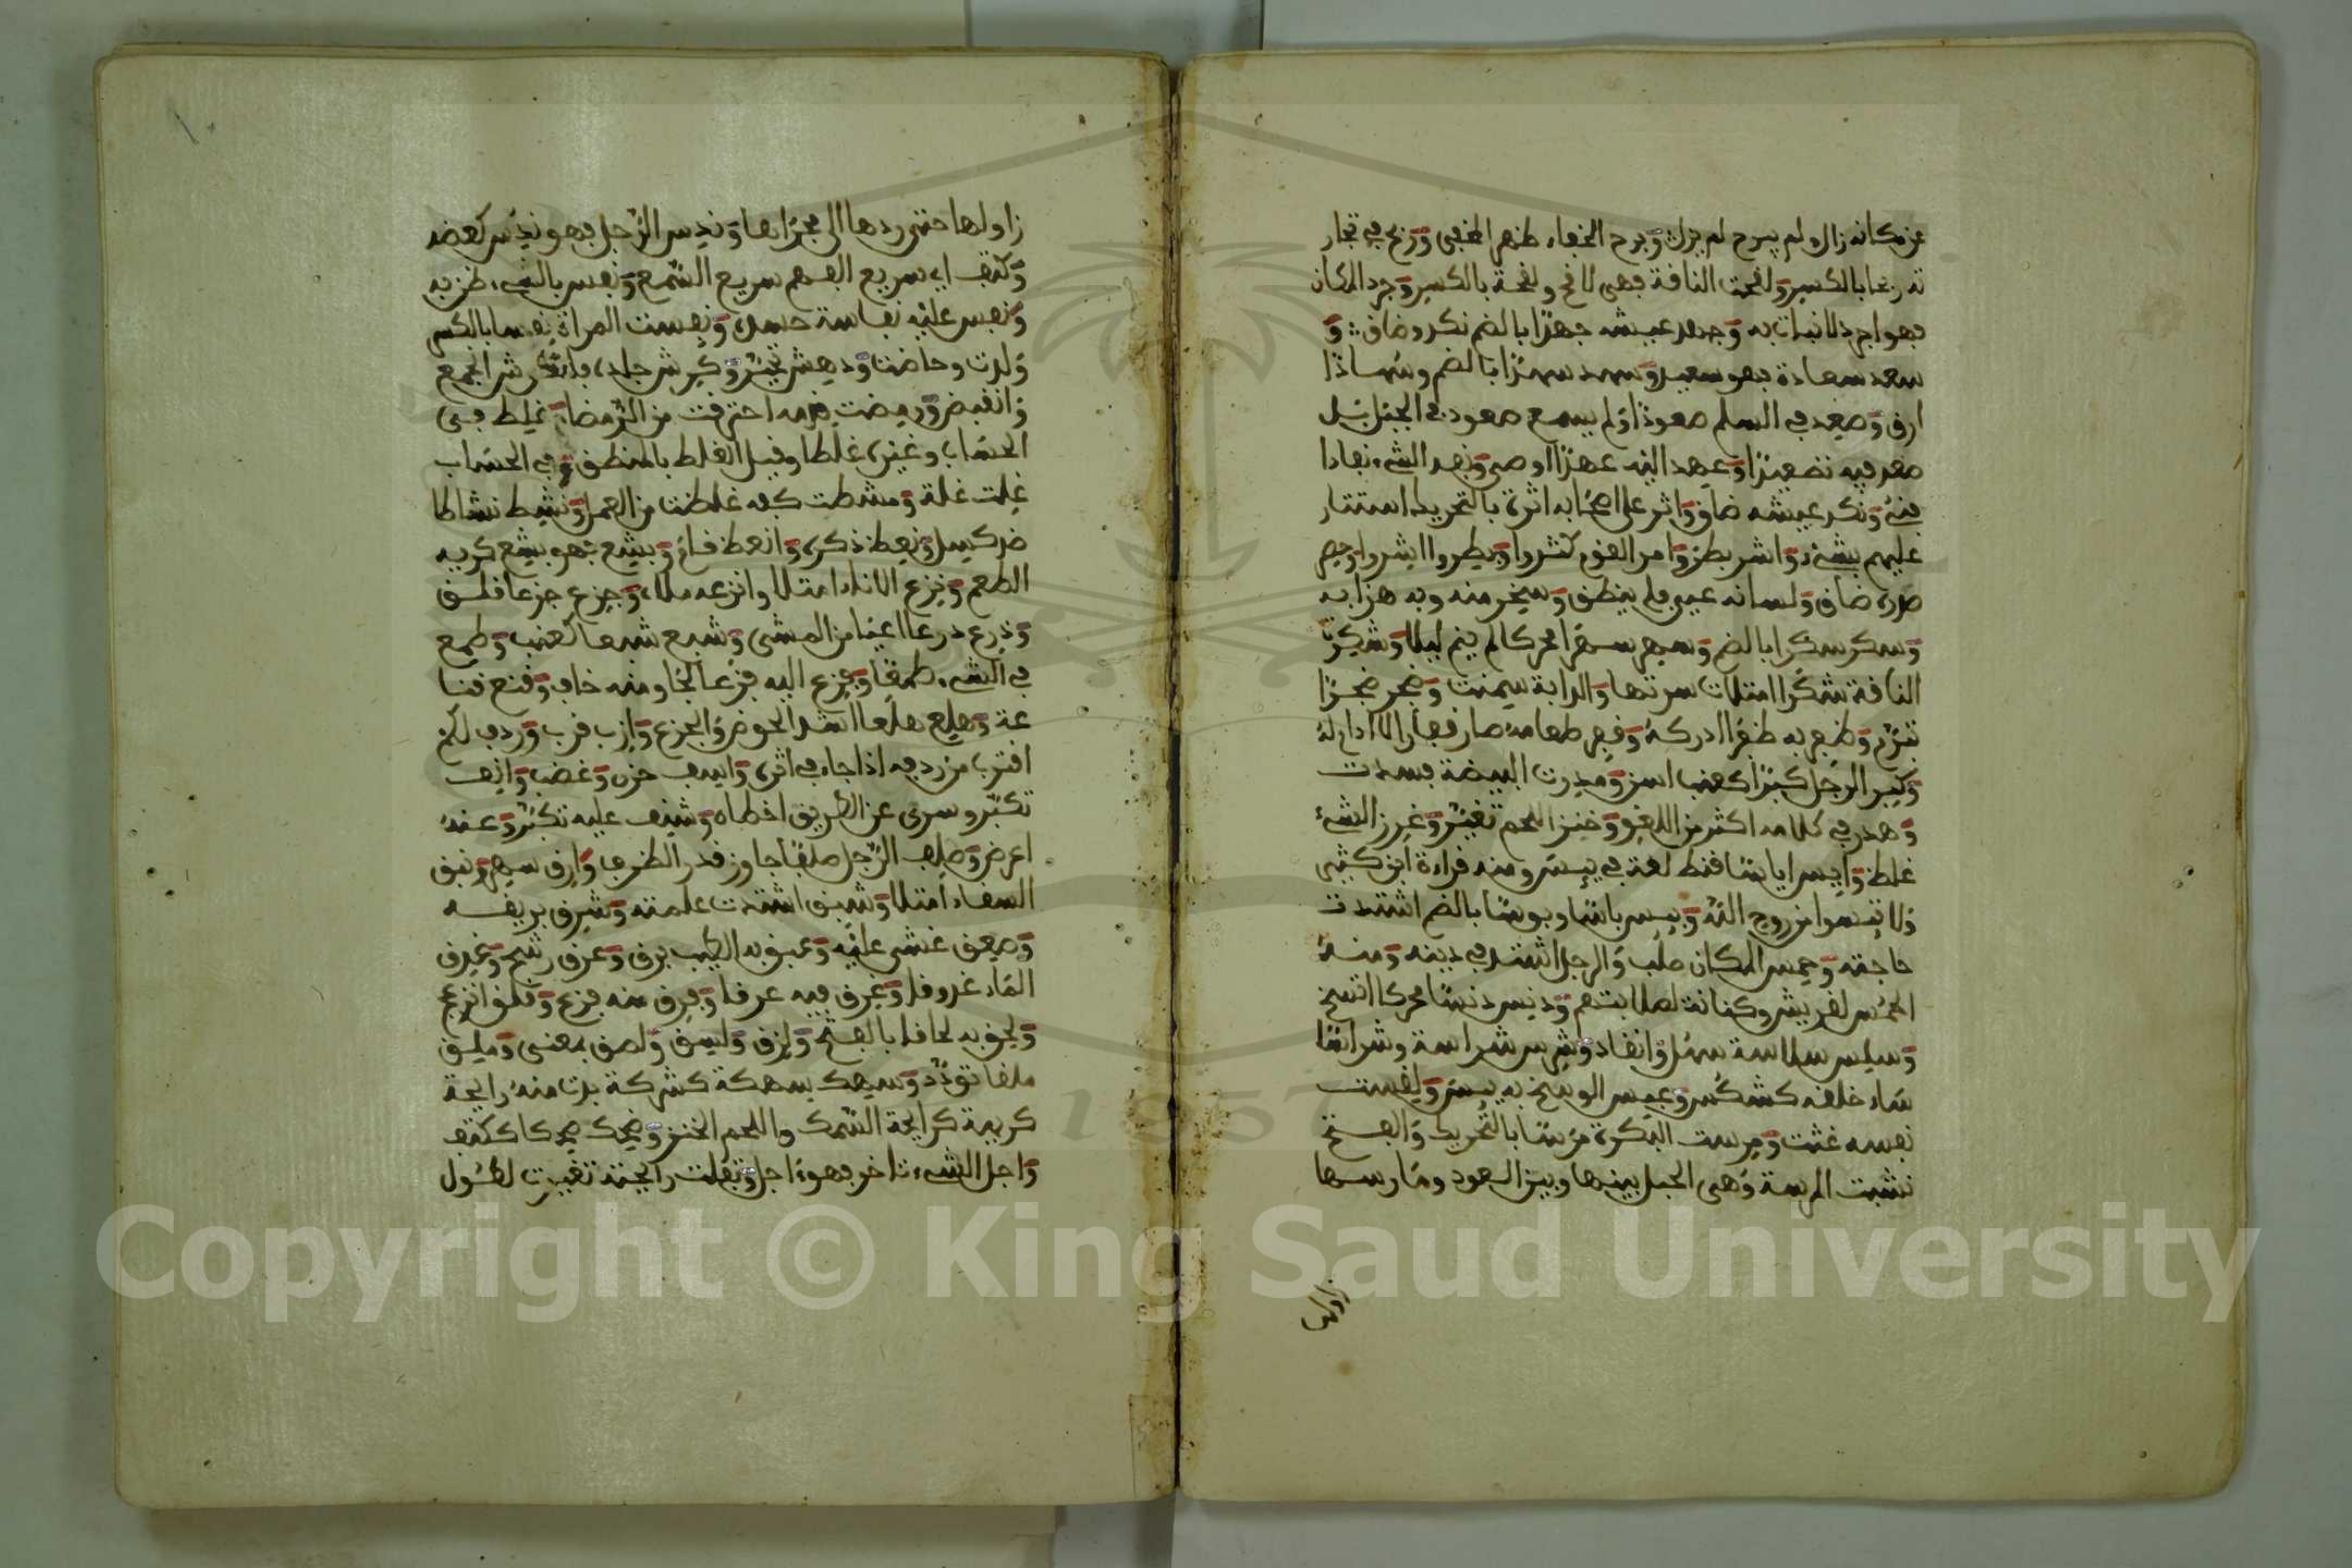 عن مكانه زال ولم يبرح لم يزل وبرح الخفاء ظهر المخفى وربح في تجار
ته ربحا بالكسر ولقحت الناقة فهى لاقح ولقحة بالكسر وجرد المكان
فهو اجرد لانبات به وجهد عيشه جهدا بالضم نكد وضاق و
سعد سعادة فهو سعيد وسهد سهدا بالضم وسهادا
ارق وصعد في السلم صعودا ولم يسمع صعود في الجبل بل
صعد فيه تصعيدا وعهد اليه عهدا اوصى ونفد الشيء نفادا
فنى ونكد عيشه ضاق واثر على اصحابه اثرة بالتحريك استئثار
عليهم بشيء واشر بطر وامر القوم كثروا وبطروا اشروا وحصر
صدره ضاق ولسانه عيى فلم ينطق وسخر منه وبه هزا به
وسكر سكرا بالضم وسهر سهرا محركا لم ينم ليلا وشكرت
الناقة شكرا امتلات سرتها والدابة سمنت وضجر ضجرا
تبرم وظفر به ظفرا ادركه وقفر طعامه صار قفارا لا ادام له
وكبر الرجل كبرا كعنب اسن ومذرت البيضة فسدت
وهدر في كلامه اكثر من اللغو وخنز اللحم تغير وغرز الشيء
غلظ وايس اياسا قنط لغة في ييس ومنه قراءة ابن كثير
ولا تيسوا من روح الله وبيس باسا وبوسا بالضم اشتدت
حاجته وحمس المكان صلب والرجل اشتد في دينه ومنه
الحمس لقريش وكنانة لصلابتهم ودنس دنسا محركا اتسخ
وسلس سلاسة سهل وانقاد وشرس شراسة وشراسا
ساء خلقه كشكس وعبس الوسخ به يبس ولقست
نفسه غثت ومرست البكرة مرسا بالتحريك والفتح
نشبت المرسة وهى الحبل بينها وبين العود ومارسها
زاولها حتى ردها الى مجراها وندس الرجل فهو ندس كعضد
وكتف اي سريع الفهم سريع السمع ونفس بالشيء ظن به
ونفس عليه نفاسة حسده ونفست المراة نفاسا بالكسر
ولدت وحاضت ودهش تحير وكرش جلده وانكرش انجمع
وانقبض ورمضت قدمه احترقت من الرمضاء وغلط في
الحساب وغيره غلطا وقيل الغلط بالمنطق وفي الحساب
غلت غلة ومشطت كفه غلظت من العمل ونشط نشاطا
ضد كسل ونعظ ذكره وانعظ قام وبشع فهو بشع كريه
الطعم وترع الاناء امتلا واترعه ملاه وجزع جزعا قلق
وذرع ذرعا اعيا من المشى وشبع شبعا كعنب وطمع
في الشيء طمعا وفزع اليه فزعا لجا ومنه خاف وقنع قنا
عة وهلع هلعا اشد الحرص والجزع وازب قرب وردف لكم
اقترب من ردفه اذا جاء في اثره واسف حزن وغضب وانف
تكبر وسرف عن الطريق اخطاه وشنف عليه تكبر وعنه
اعرض وصلف الرجل صلفا جاوز قدر الظرف وارق سهر ونبق
السقاء امتلا وشبق اشتدت غلمته وشرق بريقه
وصعق غشى عليه وعبق به الطيب لزق وعرق رشح وغرق
الماء غروقا وغرق فيه غرقا وفرق منه فزع وقلق انزعج
ولحق به لحاقا بالفتح ولزق ولسق ولصق بمعنى وملق
ملقا تودد وسهك سهكة كشركة بدت منه رايحة
كريهة كرايحة السمك واللحم الخنز وضحك ضحكا ككتف
واجل الشيء تاخر فهو اجل وتفلت رايحته تغيرت لطول